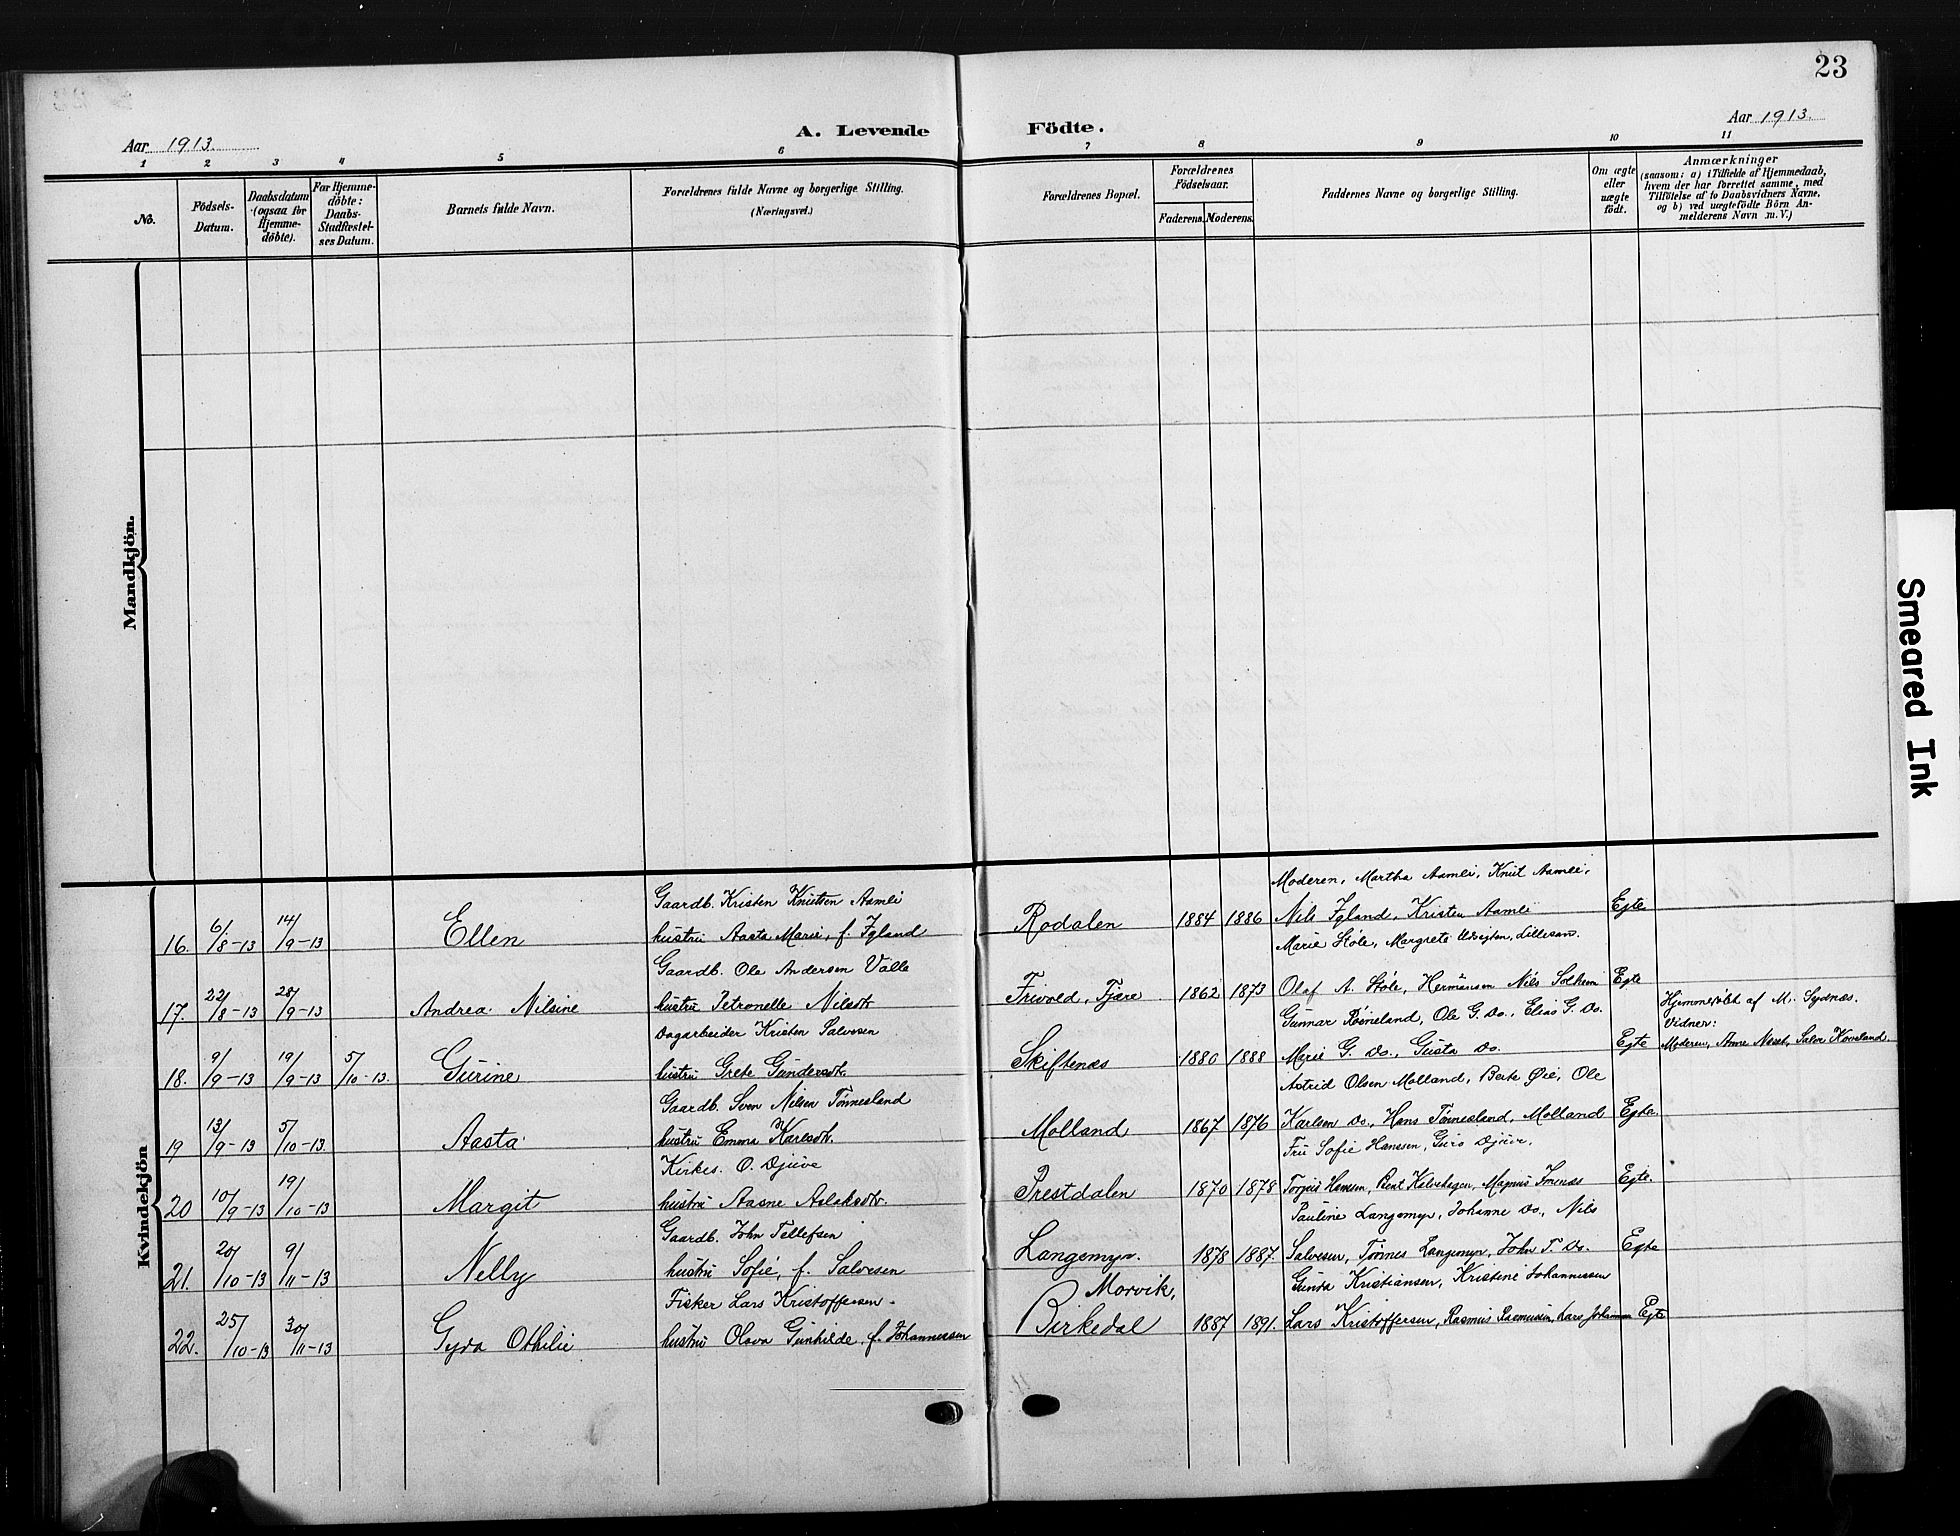 23
A. Levende Födte.
Aar 1913. Aar 1913.
1 2 3 4 5 6 7 8 9 10 11
No.
Födsels-Datum.
Daabsdatum (ogsaa for Hjemme-döbte).
For Hjemme-döbte: Daabs-Stadfæstel-ses Datum.
Barnets fulde Navn.
Forældrenes fulde Navne og borgerlige Stilling. (Næringsvei.)
Forældrenes Bopæl.
Forældrenes Födselsaar.
Faderens. Moderens.
Faddernes Navne og borgerlige Stilling.
Om ægte eller uægte födt.
Anmærkninger
(saasom: a) i Tilfælde af Hjemmedaab,
hvem der har forrettet samme, med
Tilföielse af to Daabsvidners Navne,
og b) ved uægtefödte Börn An-
melderens Navn m. V.)
Mandkjön.
Kvindekjön
Gaardb. Kristen Knutsen Aamli Moderen, Martha Aamli, Knut Aamli,
16. 6/8-13 14/9-13 Ellen hustru Aasta Marie, f. Igland Rodalen 1884 1886 Nils Igland, Kristen Aamli Egte
Marie Støle, Margrete
Gaardb. Ole Andersen Valle
17. 22/8-13 28/9-13 Andrea Nilsine hustru Petronelle Nilsdt. Frivold, Fjære 1862 1873 Olaf A. Støle, Hermansen Nils Solheim Egte
Gunnar Røineland, Ole G. Do., Elias G. Do.
Hjemmedøbt af M. Sydnæs.
Vidner:
Dagarbeider Kristen Salvesen
18. 9/9-13 19/9-13 5/10-13. Gurine hustru Grete Gundersdt. Skiftenæs 1880 1888 Marie G. Do., Gusta Do. Egte Moderen, Anne Næset, Salve
Astrid Olsen Molland, Berte Øie, Ole
Gaardb. Sven Nilsen Tønnesland
19 13/9-13 5/10-13. Aasta hustru Emma Karlsdt. Molland 1867 1876 Karlsen Do., Hans Tønnesland, Molland Egte.
Fru Sofie Hanssen, Guro Djuve.
Kirkes. O. Djuve
20 10/9-13 19/10-13 Margit hustru Aasne Aslaksdtr. Prestdalen 1870 1878 Torjus Hansen, Bent Kalvehagen, Magnus Imenæs Egte.
Pauline Langemyr, Johanne Do., Nils
Gaardb. John Tellefsen
21. 20/10-13 9/11-13 Nelly hustru Sofie, f. Salvesen Langemyr. 1878 1887 Salvesen, Tønnes Langemyr, John T. Do. Egte
Gunda Kristiansen, Kristine Johannessen
Fisker Lars Kristoffersen Morvik,
22. 25/10-13 30/11-13 Gyda Othilie hustru Olava Gunhilde, f. Johannessen Birkedal 1887 1891. Lars Kristoffersen, Rasmus Rasmussen, Lars Egte
Smeared Ink